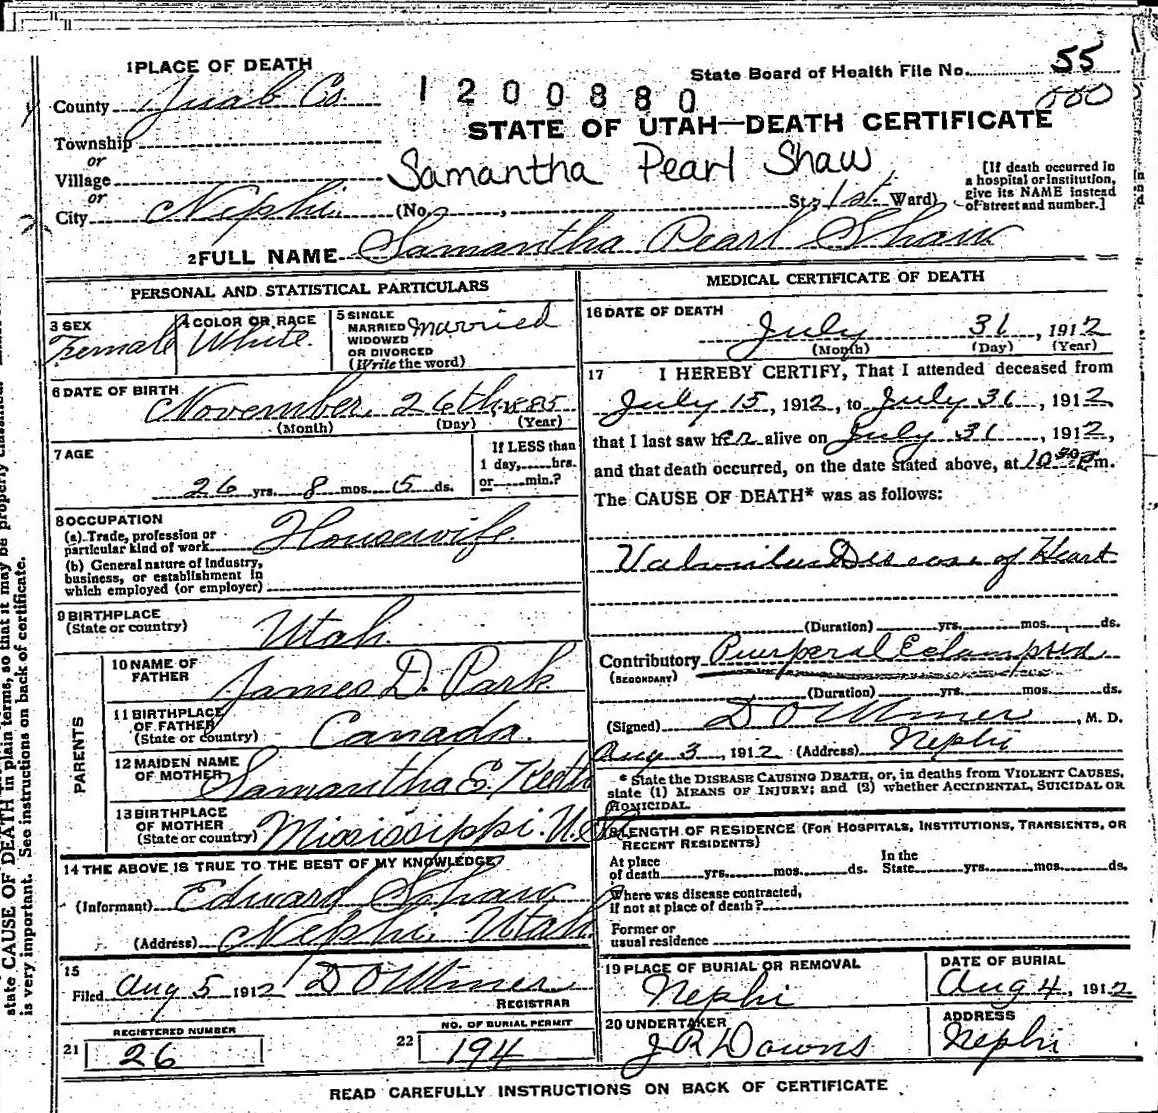 1 PLACE OF DEATH
State Board of Health File No. 55
County Juab Co.
1200880
000
STATE OF UTAH—DEATH CERTIFICATE
Township
or
Village
Samantha Pearl Shaw
[If death occurred in a hospital or institution, give its NAME instead of street and number.]
or
City Nephi (No. , St.; 1st. Ward)
2 FULL NAME Samantha Pearl Shaw
PERSONAL AND STATISTICAL PARTICULARS
3 SEX Female
4 COLOR OR RACE White.
5 SINGLE MARRIED WIDOWED OR DIVORCED (Write the word) Married
6 DATE OF BIRTH
November, 26th, 1885
(Month) (Day) (Year)
7 AGE
If LESS than 1 day, hrs. or min.?
26 yrs. 8 mos. 5 ds.
8 OCCUPATION
(a) Trade, profession or particular kind of work Housewife
(b) General nature of industry, business, or establishment in which employed (or employer)
9 BIRTHPLACE (State or country) Utah.
PARENTS
10 NAME OF FATHER James D. Park
11 BIRTHPLACE OF FATHER (State or country) Canada.
12 MAIDEN NAME OF MOTHER Samantha E.
13 BIRTHPLACE OF MOTHER (State or country) Mississippi. U.S.
14 THE ABOVE IS TRUE TO THE BEST OF MY KNOWLEDGE
(Informant) Edward Shaw
(Address) Nephi, Utah
15
Filed Aug 5 1912
REGISTRAR
REGISTERED NUMBER
21 26
NO. OF BURIAL PERMIT
22 194
MEDICAL CERTIFICATE OF DEATH
16 DATE OF DEATH
July 31, 1912
(Month) (Day) (Year)
17 I HEREBY CERTIFY, That I attended deceased from
July 15, 1912, to July 31, 1912
that I last saw her alive on July 31, 1912,
and that death occurred, on the date stated above, at 10 30 P.m.
The CAUSE OF DEATH* was as follows:
Valvular Disease of Heart
(Duration) yrs. mos. ds.
Contributory Puerperal Eclampsia
(SECONDARY)
(Duration) yrs. mos. ds.
(Signed) , M. D.
Aug 3, 1912 (Address) Nephi
* State the DISEASE CAUSING DEATH, or, in deaths from VIOLENT CAUSES, state (1) MEANS OF INJURY; and (2) whether ACCIDENTAL, SUICIDAL OR HOMICIDAL.
18 LENGTH OF RESIDENCE (FOR HOSPITALS, INSTITUTIONS, TRANSIENTS, OR RECENT RESIDENTS)
At place of death yrs. mos. ds. In the State yrs. mos. ds.
Where was disease contracted, if not at place of death?
Former or usual residence
19 PLACE OF BURIAL OR REMOVAL
Nephi
DATE OF BURIAL
Aug 4, 1912
20 UNDERTAKER
J R Downs
ADDRESS
Nephi
READ CAREFULLY INSTRUCTIONS ON BACK OF CERTIFICATE
state CAUSE OF DEATH in plain terms, so that it may be properly
is very important. See instructions on back of certificate.